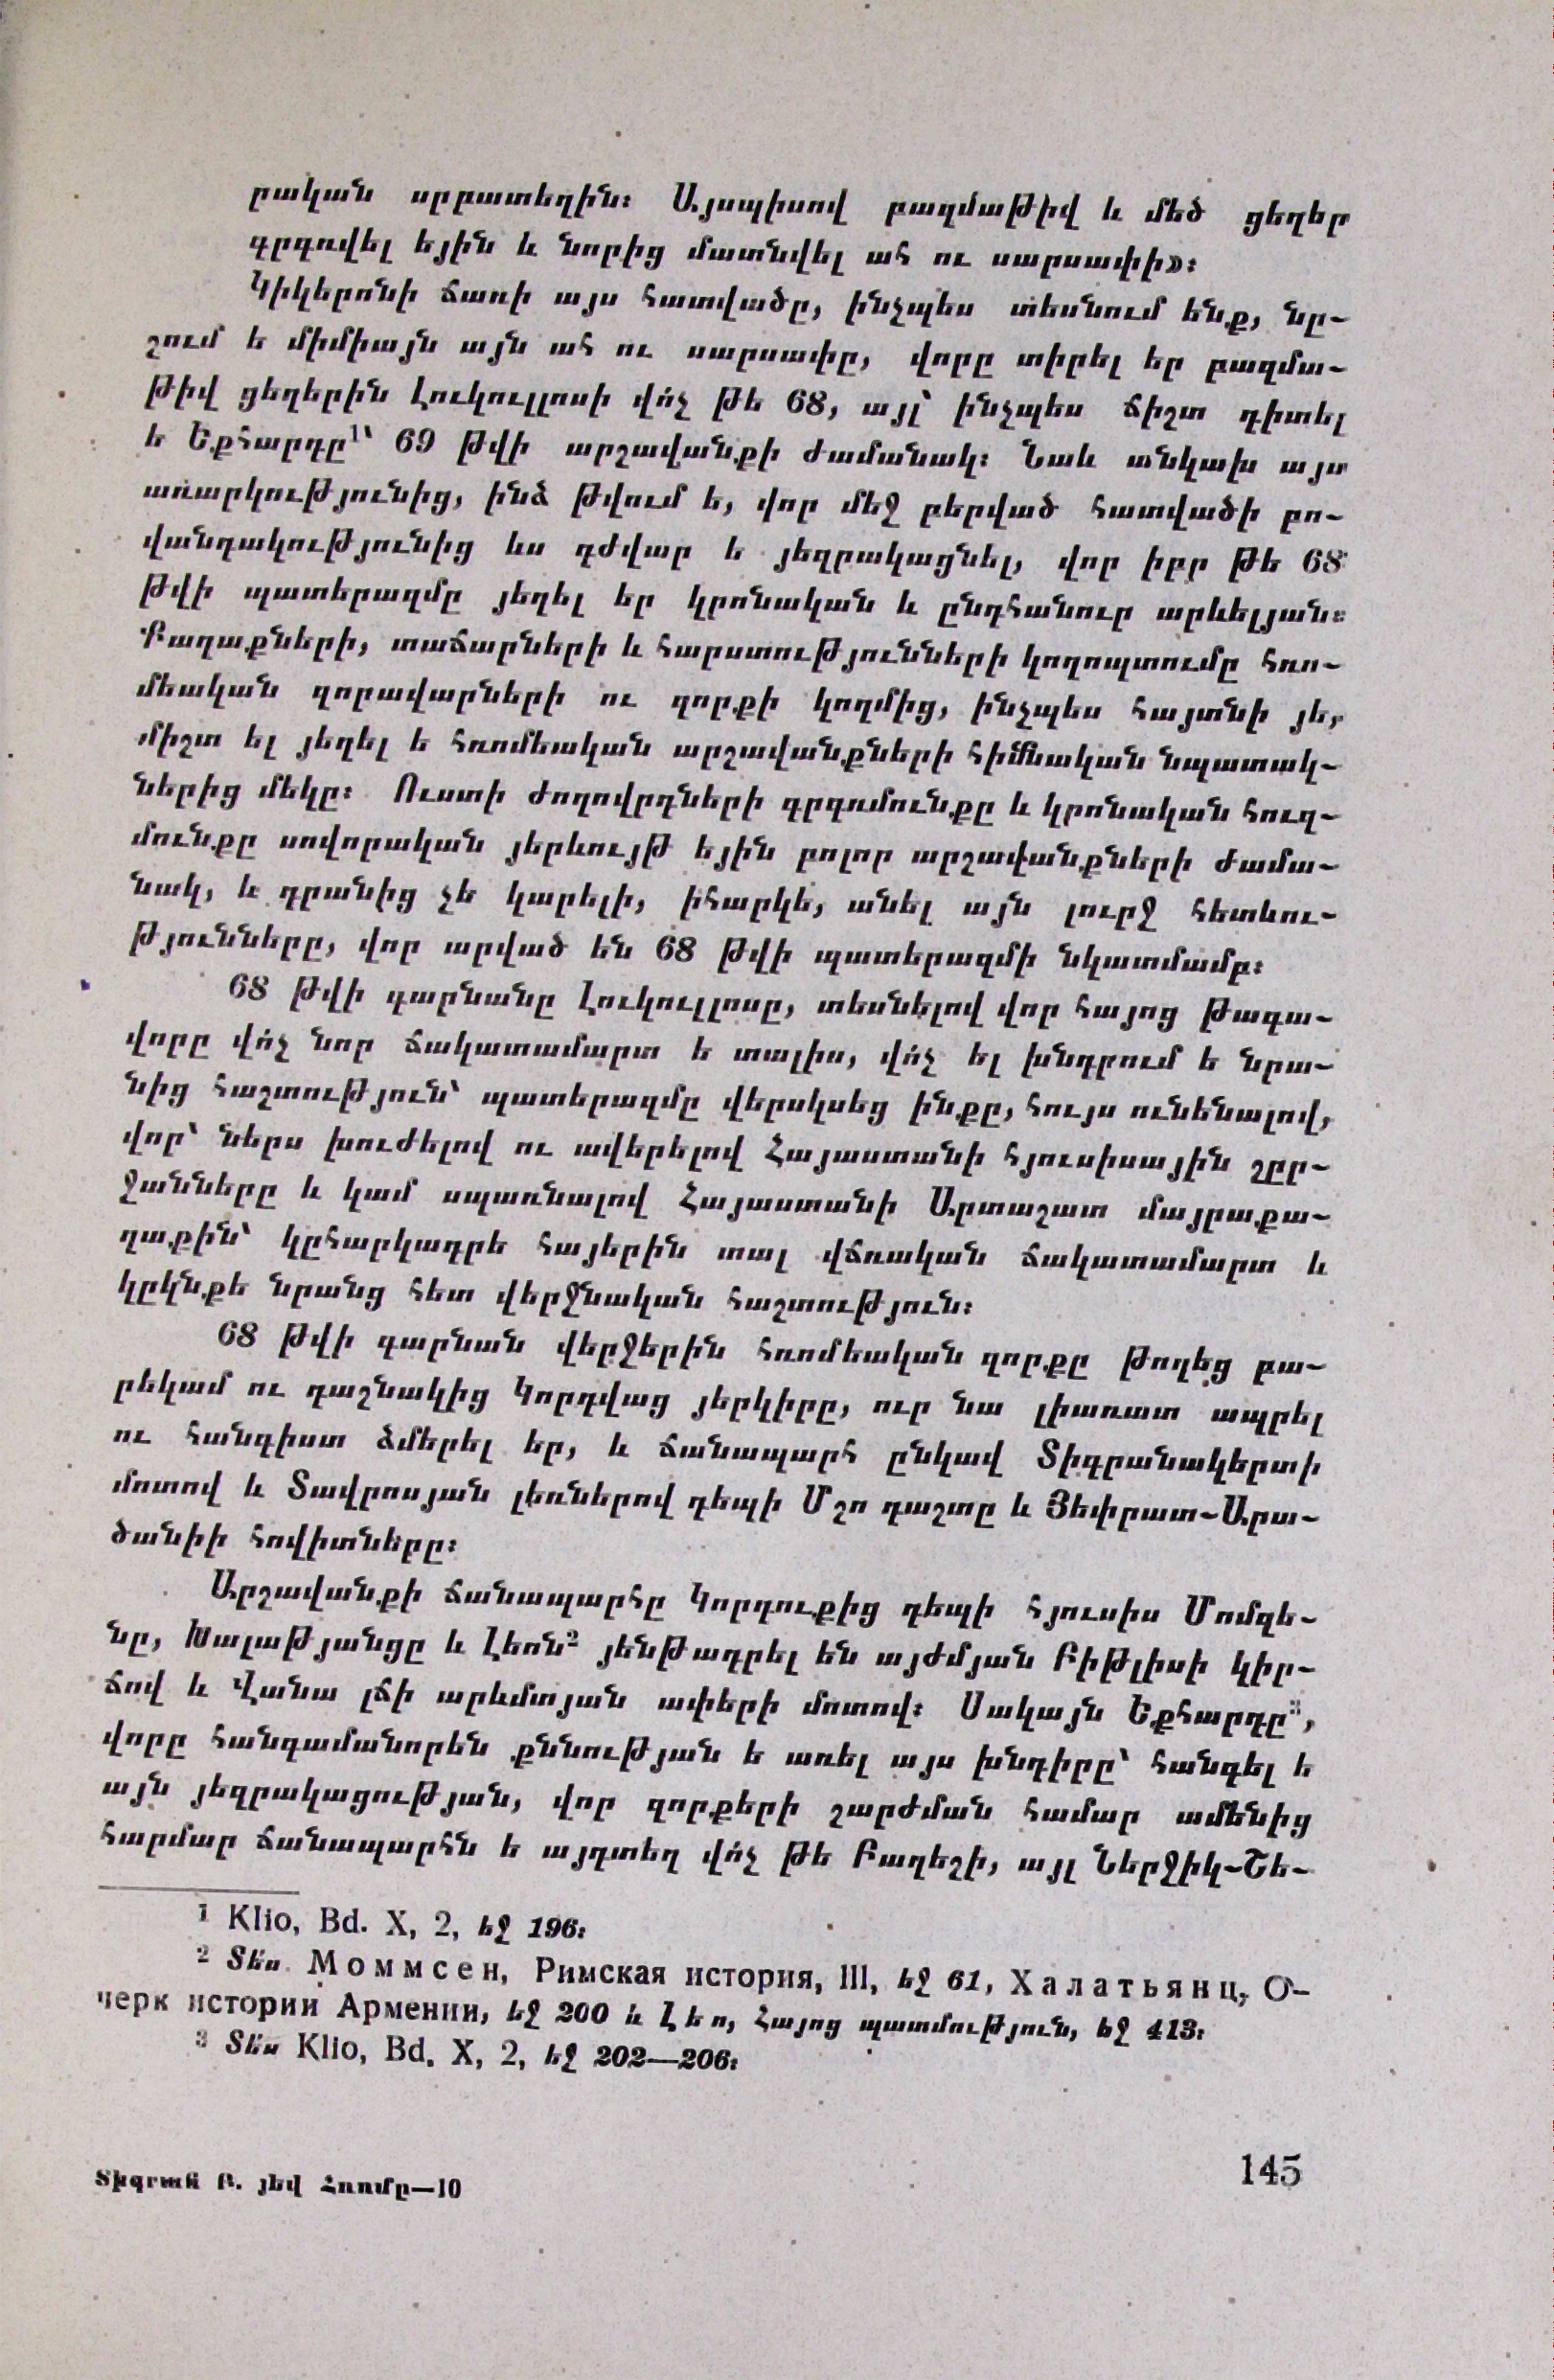 րական սրբատեղին։ Այսպիսով բազմաթիվ և մեծ ցեղեր
գրգռվել եյին և նորից մատնվել ահ ու սարսափի»։
Կիկերոնի ճառի այս հատվածը, ինչպես տեսնում ենք, նը-
շում ե միմիայն այն ահ ու սարսափը, վորը տիրել եր բազմա-
թիվ ցեղերին Լուկուլլոսի վո՛չ թե 68, այլ՝ ինչպես ճիշտ դիտել
ե Եքհարդը¹՝ 69 թվի արշավանքի ժամանակ։ Նաև անկախ այս
առարկությունից, ինձ թվում ե, վոր մեջ բերված հատվածի բո-
վանդակությունից ևս դժվար ե յեզրակացնել, վոր իբր թե 68
թվի պատերազմը յեղել եր կրոնական և ընդհանուր արևելյան։
Քաղաքների, տաճարների և հարստությունների կողոպտումը հռո-
մեական զորավարների ու զորքի կողմից, ինչպես հայտնի յե,
միշտ ել յեղել ե հռոմեական արշավանքների հիմնական նպատակ-
ներից մեկը։ Ուստի ժողովրդների գրգռմունքը և կրոնական հուզ-
մունքը սովորական յերևույթ եյին բոլոր արշավանքների ժամա-
նակ, և դրանից չե կարելի, իհարկե, անել այն լուրջ հետևու-
թյունները, վոր արված են 68 թվի պատերազմի նկատմամբ։
68 թվի գարնանը Լուկուլլոսը, տեսնելով վոր հայոց թագա-
վորը վո՛չ նոր ճակատամարտ ե տալիս, վո՛չ ել խնդրում ե նրա-
նից հաշտություն՝ պատերազմը վերսկսեց ինքը, հույս ունենալով,
վոր՝ ներս խուժելով ու ավերելով Հայաստանի հյուսիսային շըր-
ջանները և կամ սպառնալով Հայաստանի Արտաշատ մայրաքա-
ղաքին՝ կըհարկադրե հայերին տալ վճռական ճակատամարտ և
կըկնքե նրանց հետ վերջնական հաշտություն։
68 թվի գարնան վերջերին հռոմեական զորքը թողեց բա-
րեկամ ու դաշնակից Կորդվաց յերկիրը, ուր նա լիառատ ապրել
ու հանգիստ ձմերել եր, և ճանապարհ ընկավ Տիգրանակերտի
մոտով և Տավրոսյան լեռներով դեպի Մշո դաշտը և Յեփրատ-Արա-
ծանիի հովիտները։
Արշավանքի ճանապարհը Կորդուքից դեպի հյուսիս Մոմզե-
նը, Խալաթյանցը և Լեոն² յենթադրել են այժմյան Բիթլիսի կիր-
ճով և Վանա լճի արևմտյան ափերի մոտով։ Սակայն Եքհարդը³,
վորը հանգամանորեն քննության ե առել այս խնդիրը՝ հանգել ե
այն յեզրակացության, վոր զորքերի շարժման համար ամենից
հարմար ճանապարհն ե այդտեղ վո՛չ թե Բաղեշի, այլ Ներջիկ-Շե-
¹ Klio, Bd. X, 2, եջ 196։
² Տե՛ս Моммсен, Римская история, III, եջ 61, Халатьянц, О-
черк истории Армении, եջ 200 և Լեո, Հայոց պատմություն, եջ 413։
³ Տե՛ս Klio, Bd. X, 2, եջ 202—206։
Տիգրան Բ. յեվ Հռոմը—10
145